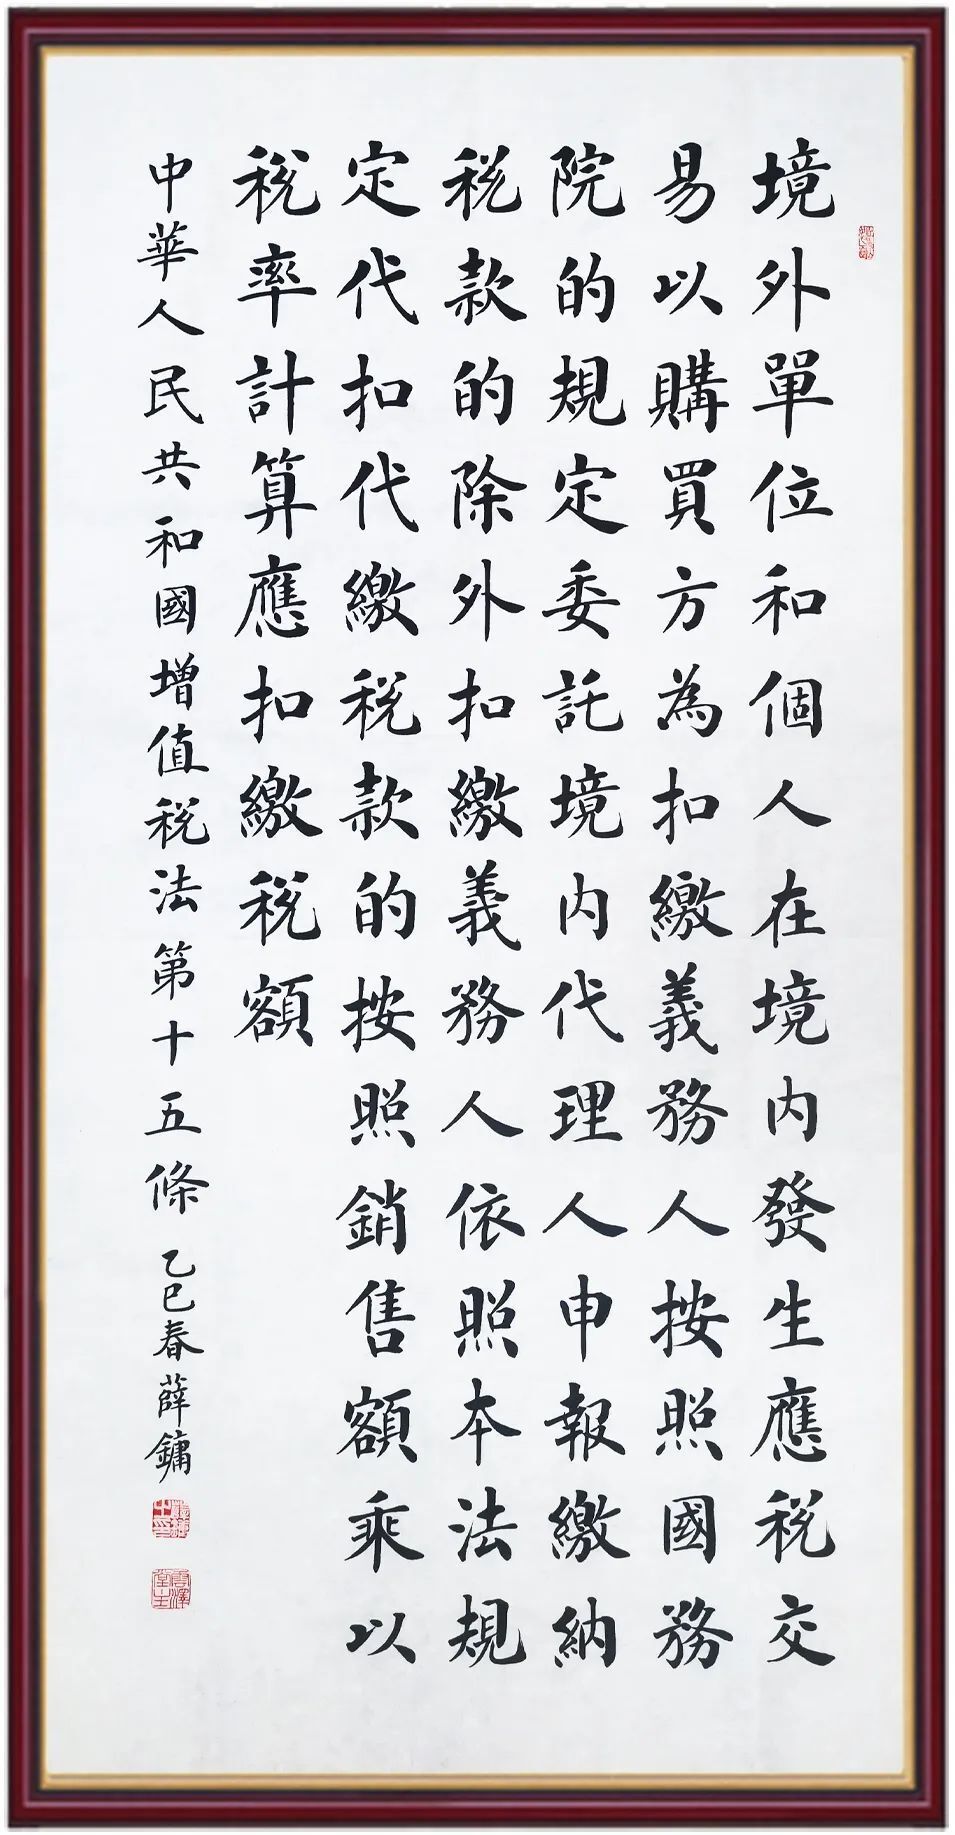 境外單位和個人在境内發生應稅交
易以購買方為扣繳義務人按照國務
院的規定委託境内代理人申報繳納
稅款的除外扣繳義務人依照本法規
定代扣代繳稅款的按照銷售額乘以
稅率計算應扣繳稅額
中華人民共和國增值稅法第十五條 乙巳春薛鏞